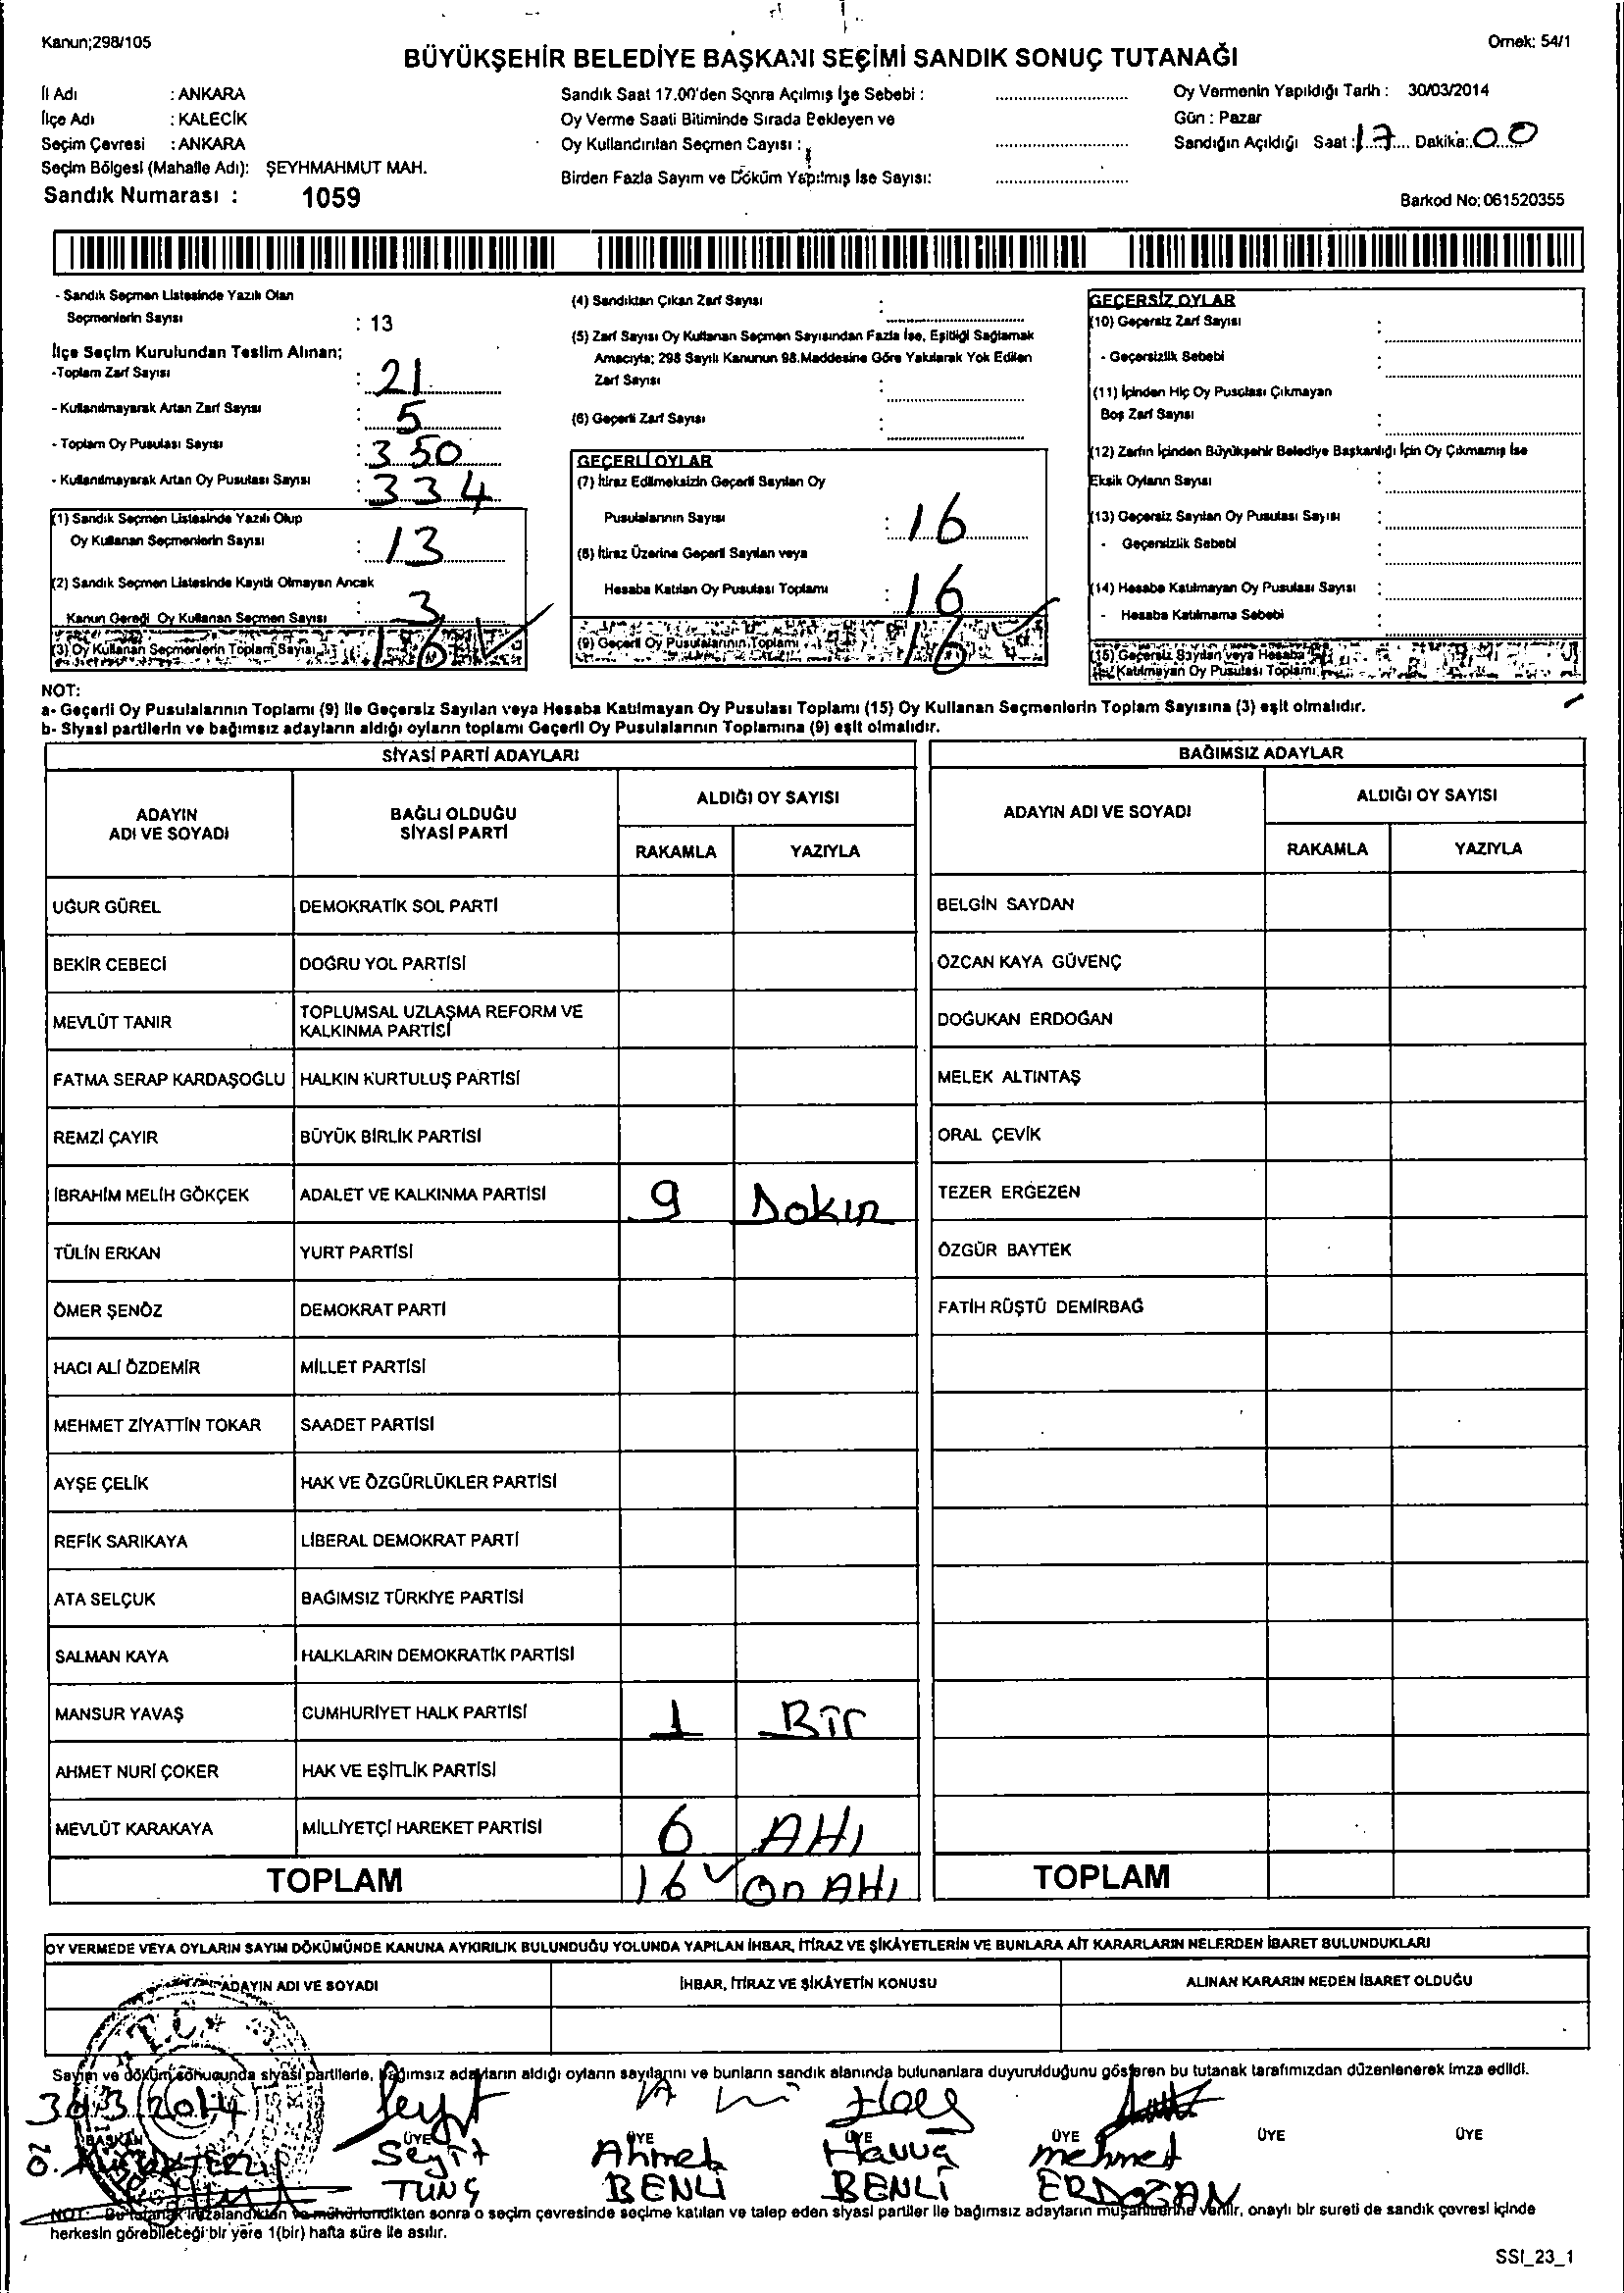 Kanun;298/105
Örnek: 54/1
BÜYÜKŞEHİR BELEDİYE BAŞKANI SEÇİMİ SANDIK SONUÇ TUTANAĞI
İl Adı : ANKARA
İlçe Adı : KALECİK
Seçim Çevresi : ANKARA
Seçim Bölgesi (Mahalle Adı): ŞEYHMAHMUT MAH.
Sandık Numarası : 1059
Sandık Saat 17.00'den Sonra Açılmış İse Sebebi :
Oy Verme Saati Bitiminde Sırada Bekleyen ve
Oy Kullandırılan Seçmen Sayısı :
Birden Fazla Sayım ve Döküm Yapılmış İse Sayısı:
Oy Vermenin Yapıldığı Tarih : 30/03/2014
Gün : Pazar
Sandığın Açıldığı Saat : 17 Dakika: 00
Barkod No: 061520355
- Sandık Seçmen Listesinde Yazılı Olan
Seçmenlerin Sayısı : 13
İlçe Seçim Kurulundan Teslim Alınan;
-Toplam Zarf Sayısı : 21
- Kullanılmayarak Artan Zarf Sayısı : 5
- Toplam Oy Pusulası Sayısı : 350
- Kullanılmayarak Artan Oy Pusulası Sayısı : 334
(1) Sandık Seçmen Listesinde Yazılı Olup
Oy Kullanan Seçmenlerin Sayısı : 13
(2) Sandık Seçmen Listesinde Kayıtlı Olmayan Ancak
Kanun Gereği Oy Kullanan Seçmen Sayısı : 3
(3) Oy Kullanan Seçmenlerin Toplam Sayısı 16
(4) Sandıktan Çıkan Zarf Sayısı :
(5) Zarf Sayısı Oy Kullanan Seçmen Sayısından Fazla İse, Eşitliği Sağlamak
Amacıyla; 298 Sayılı Kanunun 98.Maddesine Göre Yakılarak Yok Edilen
Zarf Sayısı :
(6) Geçerli Zarf Sayısı :
GEÇERLİ OYLAR
(7) İtiraz Edilmeksizin Geçerli Sayılan Oy
Pusulalarının Sayısı : 16
(8) İtiraz Üzerine Geçerli Sayılan veya
Hesaba Katılan Oy Pusulası Toplamı : 16
(9) Geçerli Oy Pusulalarının Toplamı 16
GEÇERSİZ OYLAR
(10) Geçersiz Zarf Sayısı :
- Geçersizlik Sebebi :
(11) İçinden Hiç Oy Pusulası Çıkmayan
Boş Zarf Sayısı :
(12) Zarfın İçinden Büyükşehir Belediye Başkanlığı İçin Oy Çıkmamış İse
Eksik Oyların Sayısı :
(13) Geçersiz Sayılan Oy Pusulası Sayısı :
- Geçersizlik Sebebi :
(14) Hesaba Katılmayan Oy Pusulası Sayısı :
- Hesaba Katılmama Sebebi :
(15) Geçersiz Sayılan veya Hesaba
Katılmayan Oy Pusulası Toplamı
NOT:
a- Geçerli Oy Pusulalarının Toplamı (9) ile Geçersiz Sayılan veya Hesaba Katılmayan Oy Pusulası Toplamı (15) Oy Kullanan Seçmenlerin Toplam Sayısına (3) eşit olmalıdır.
b- Siyasi partilerin ve bağımsız adayların aldığı oyların toplamı Geçerli Oy Pusulalarının Toplamına (9) eşit olmalıdır.
SİYASİ PARTİ ADAYLARI
ADAYIN ADI VE SOYADI
BAĞLI OLDUĞU SİYASİ PARTİ
ALDIĞI OY SAYISI
RAKAMLA YAZIYLA
UĞUR GÜREL DEMOKRATİK SOL PARTİ
BEKİR CEBECİ DOĞRU YOL PARTİSİ
MEVLÜT TANIR TOPLUMSAL UZLAŞMA REFORM VE
KALKINMA PARTİSİ
FATMA SERAP KARDAŞOĞLU HALKIN KURTULUŞ PARTİSİ
REMZİ ÇAYIR BÜYÜK BİRLİK PARTİSİ
İBRAHİM MELİH GÖKÇEK ADALET VE KALKINMA PARTİSİ 9 Dokın
TÜLİN ERKAN YURT PARTİSİ
ÖMER ŞENÖZ DEMOKRAT PARTİ
HACI ALİ ÖZDEMİR MİLLET PARTİSİ
MEHMET ZİYATTİN TOKAR SAADET PARTİSİ
AYŞE ÇELİK HAK VE ÖZGÜRLÜKLER PARTİSİ
REFİK SARIKAYA LİBERAL DEMOKRAT PARTİ
ATA SELÇUK BAĞIMSIZ TÜRKİYE PARTİSİ
SALMAN KAYA HALKLARIN DEMOKRATİK PARTİSİ
MANSUR YAVAŞ CUMHURİYET HALK PARTİSİ 1 Bir
AHMET NURİ ÇOKER HAK VE EŞİTLİK PARTİSİ
MEVLÜT KARAKAYA MİLLİYETÇİ HAREKET PARTİSİ 6 Altı
TOPLAM 16 On Altı
BAĞIMSIZ ADAYLAR
ADAYIN ADI VE SOYADI
ALDIĞI OY SAYISI
RAKAMLA YAZIYLA
BELGİN SAYDAN
ÖZCAN KAYA GÜVENÇ
DOĞUKAN ERDOĞAN
MELEK ALTINTAŞ
ORAL ÇEVİK
TEZER ERGEZEN
ÖZGÜR BAYTEK
FATİH RÜŞTÜ DEMİRBAĞ
TOPLAM
OY VERMEDE VEYA OYLARIN SAYIM DÖKÜMÜNDE KANUNA AYKIRILIK BULUNDUĞU YOLUNDA YAPILAN İHBAR, İTİRAZ VE ŞİKÂYETLERİN VE BUNLARA AİT KARARLARIN NELERDEN İBARET BULUNDUKLARI
ADAYIN ADI VE SOYADI İHBAR, İTİRAZ VE ŞİKÂYETİN KONUSU ALINAN KARARIN NEDEN İBARET OLDUĞU
T.C.
Sayım ve döküm sonucunda siyasi partilerle, bağımsız adayların aldığı oyların sayılarını ve bunların sandık alanında bulunanlara duyurulduğunu gösteren bu tutanak tarafımızdan düzenlenerek imza edildi.
30/3/2014 Seyit
BAŞKAN ÜYE ÜYE ÜYE ÜYE ÜYE ÜYE
Seyit Ahmet Havva mehmet
TUNÇ BENLİ BENLİ ERDOĞAN
NOT: Bu tutanak imzalandıktan ve mühürlendikten sonra o seçim çevresinde seçime katılan ve talep eden siyasi partiler ile bağımsız adayların müşahitlerine verilir, onaylı bir sureti de sandık çevresi içinde
herkesin görebileceği bir yere 1(bir) hafta süre ile asılır.
SSI_23_1